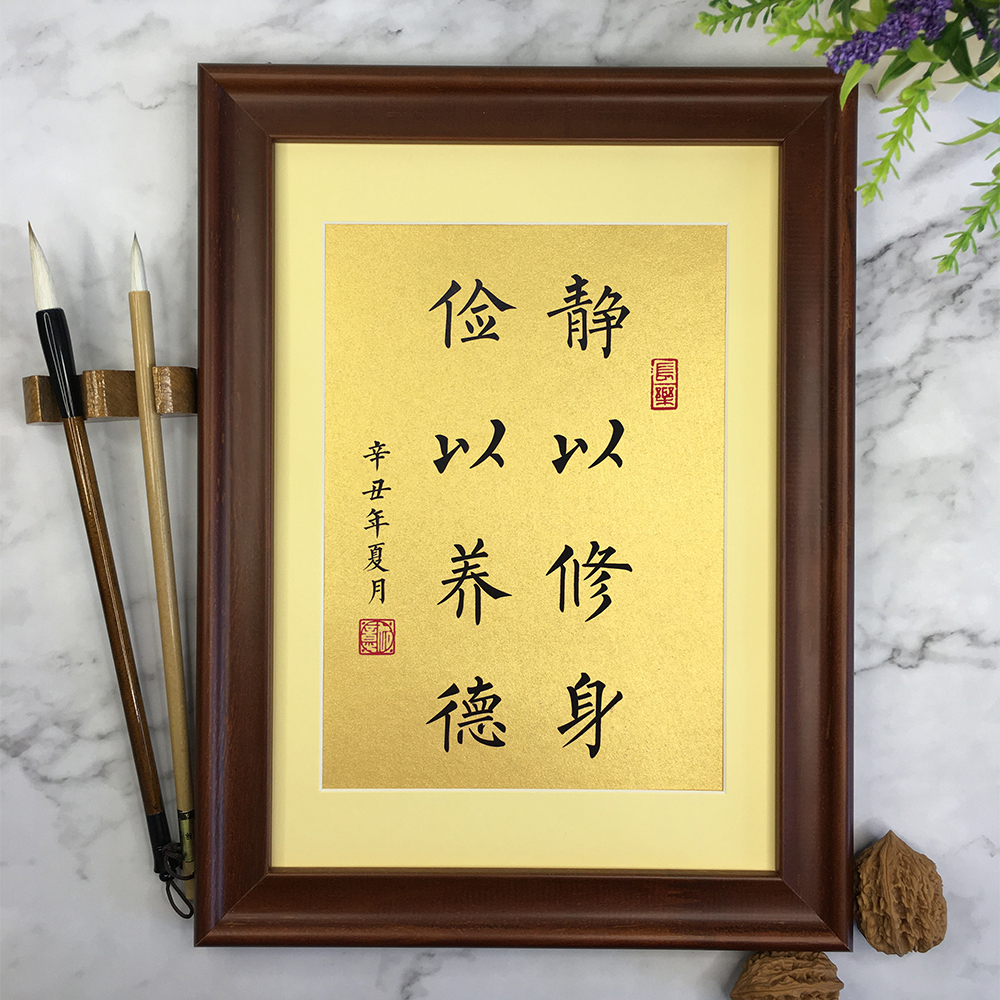 静以修身
俭以养德
辛丑年夏月
長樂